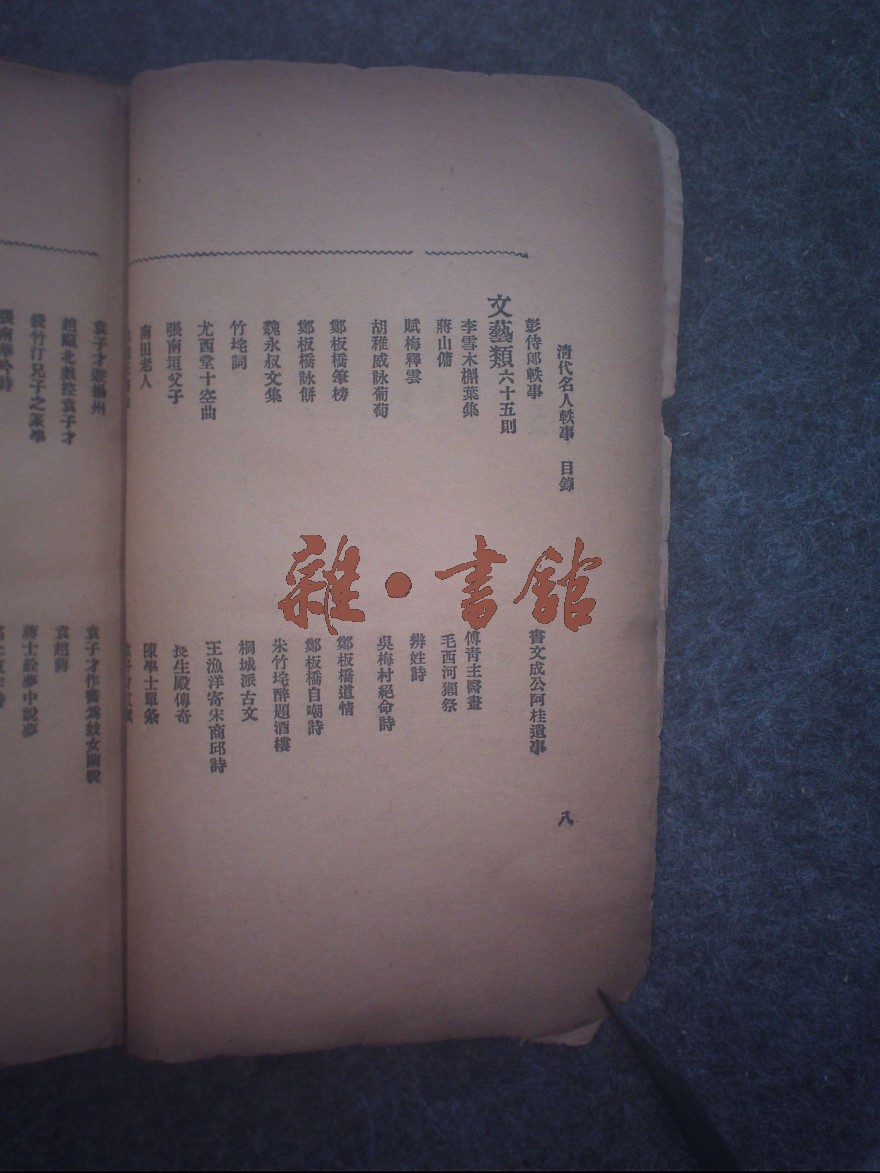 清代名人軼事　目錄
八
彭侍郎軼事
書文成公阿桂遺事
文藝類六十五則
李雪木槲葉集
傅青主醫畫
蔣山傭
毛西河獺祭
賦梅釋雲
辨姓詩
胡稚威詠葡萄
吳梅村絕命詩
鄭板橋筆榜
鄭板橋道情
鄭板橋詠餅
鄭板橋自嘲詩
魏永叔文集
朱竹垞醉題酒樓
竹垞詞
桐城派古文
尤西堂十空曲
王漁洋寄宋商邱詩
張南垣父子
長生殿傳奇
南田老人
陳學士單条
袁子才遊揚州
袁子才作書為妓女關說
趙甌北戲控袁子才
袁趙蔣
錢竹汀兄子之家學
蔣士銓夢中說夢
張南華吟詩
雜·書館